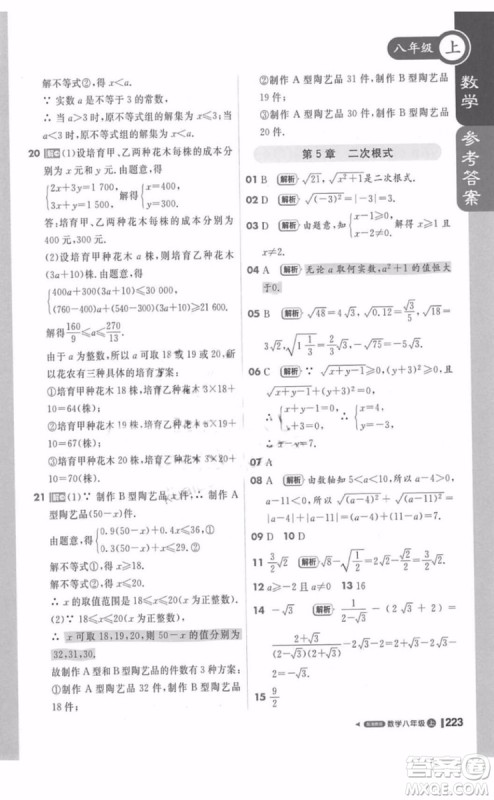 八年级 上
数学 参考答案
解不等式②,得 x<a.
∵ 实数 a 是大于 3 的常数,
∴ 原不等式组的解集为 x<3,当
a<3 时,原不等式组的解集为 x<a.
20 (1)设培育甲、乙两种花木每株的成本分
别为 x 元、y 元.由题意,得
{2x+3y=1 700, 3x+y=1 500, 解得 {x=400, y=300.
答:培育甲、乙两种花木每株的成本分别为
400 元,300 元.
(2)设培育甲种花木 a 株,培育乙种花木
(3a+10)株.由题意,得
{400a+300(3a+10)≤30 000,
(760-400)a+(540-300)(3a+10)≥21 600.
解得 160/9≤a≤270/13.
由于 a 为整数,∴ a 可取 18,19,20,所
以花农有三种具体的培育方案:
①培育甲种花木 18 株,培育乙种花木 3×18+
10=64(株);
②培育甲种花木 19 株,培育乙种花木 3×19+
10=67(株);
③培育甲种花木 20 株,培育乙种花木 3×20+
10=70(株).
21 (1)∵ 制作 A 型陶艺品 x 件,∴ 制作 A
型陶艺品(50-x)件.由题意,得
{0.9(50-x)+0.4x≤36,
0.3(50-x)+x≤27.
解不等式①,得 x≥18.
解不等式②,得 x≤20.
∴ x 的取值范围是 18≤x≤20(x 为正整数).
(2)∵ 18≤x≤20(x 为正整数),
∴ x 可取 18,19,20,则 50-x 的值分别为
32,31,30.
故制作 A 型和 B 型陶艺品的件数有 3 种方案;
①制作 A 型陶艺品 32 件,制作 B 型陶艺品
18 件;
②制作 A 型陶艺品 31 件,制作 B 型陶艺品
19 件;
③制作 A 型陶艺品 30 件,制作 B 型陶艺品
20 件.
第 5 章 二次根式
01 B 解析 √21,√(x²+1)是二次根式.
02 D 解析 √((-3)²)=√(3²)=3.
03 D 解析 由题意,知{x-1≥0, x-2≠0, 解得 x≥1 且
x≠2.
04 A 解析 无论 a 取何实数,a²+1 的值恒大
于0.
05 B 解析 √48=4√3,
3√2,√(1 1/3)=2/3√3.
08 A 解析 由数轴知 5<a<10,所以 a-4>0,
a-11<0,所以√((a-4)²)+√((a-11)²)=
|a-4|+|a-11|=a-4-(a-11)=7.
09 D 10 A
11 3/2√2
12 a≥-2 且 a≠0 13 16
15 9/2
数学八年级 上 223